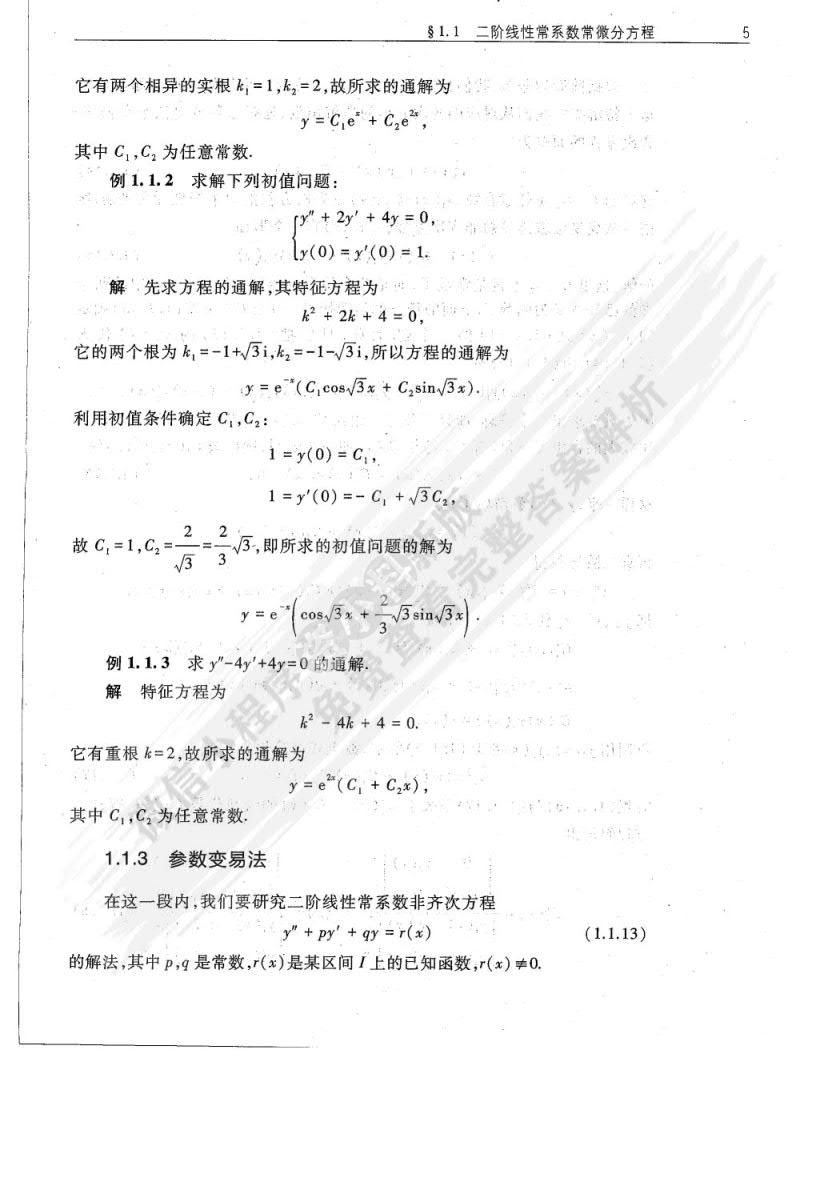 §1.1 二阶线性常系数常微分方程 5
它有两个相异的实根 k₁=1,k₂=2,故所求的通解为
y = C₁eˣ + C₂e²ˣ,
其中 C₁,C₂ 为任意常数.
例 1.1.2 求解下列初值问题:
{ y″ + 2y′ + 4y = 0,
y(0) = y′(0) = 1.
解 先求方程的通解,其特征方程为
k² + 2k + 4 = 0,
它的两个根为 k₁=-1+√3i,k₂=-1-√3i,所以方程的通解为
y = e⁻ˣ(C₁cos√3x + C₂sin√3x).
利用初值条件确定 C₁,C₂:
1 = y(0) = C₁,
1 = y′(0) = - C₁ + √3C₂,
故 C₁=1,C₂=2/√3=2/3√3,即所求的初值问题的解为
y = e⁻ˣ(cos√3x + 2/3√3sin√3x).
例 1.1.3 求 y″-4y′+4y=0 的通解.
解 特征方程为
k² - 4k + 4 = 0.
它有重根 k=2,故所求的通解为
y = e²ˣ(C₁ + C₂x),
其中 C₁,C₂ 为任意常数.
1.1.3 参数变易法
在这一段内,我们要研究二阶线性常系数非齐次方程
y″ + py′ + qy = r(x) (1.1.13)
的解法,其中 p,q 是常数,r(x)是某区间 I 上的已知函数,r(x)≢0.